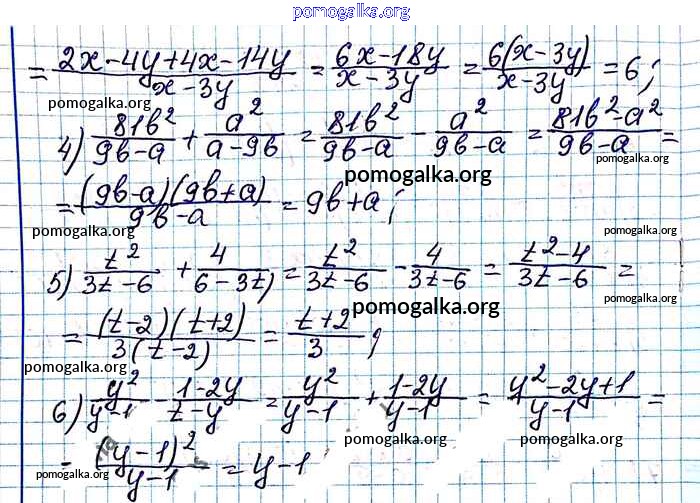 pomogalka.org
= (2x-4y+4x-14y)/(x-3y) = (6x-18y)/(x-3y) = 6(x-3y)/(x-3y) = 6;
pomogalka.org
4) 81b²/(9b-a) + a²/(a-9b) = 81b²/(9b-a) - a²/(9b-a) = (81b²-a²)/(9b-a) =
pomogalka.org
pomogalka.org
= (9b-a)(9b+a)/(9b-a) = 9b+a;
pomogalka.org
pomogalka.org
5) t²/(3t-6) + 4/(6-3t) = t²/(3t-6) - 4/(3t-6) = (t²-4)/(3t-6) =
pomogalka.org
pomogalka.org
= (t-2)(t+2)/3(t-2) = (t+2)/3;
pomogalka.org
6) y²/(y-1) (1-2y)/(t-y) = y²/(y-1) + (1-2y)/(y-1) = (y²-2y+1)/(y-1) =
= (y-1)²/(y-1) = y-1
pomogalka.org
pomogalka.org
pomogalka.org